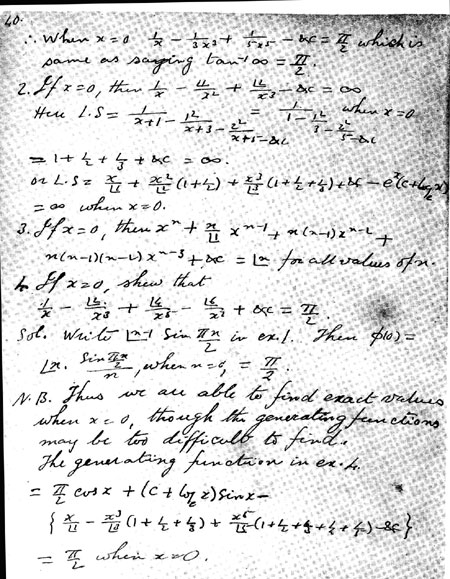 40.
∴ When x=0 1/x − 1/3x³ + 1/5x⁵ − &c = π/2 which is
same as saying tan⁻¹∞ = π/2.
2. If x=0, then 1/x − |1/x² + |2/x³ − &c = ∞
Here L.S = 1/x+1− 1²/x+3− 2²/x+5−&c = 1/1− 1²/3− 2²/5−&c when x=0
= 1+½+⅓+&c = ∞.
or L.S = x/|1 + x²/|2 (1+½) + x³/|3 (1+½+⅓)+&c − eˣ(c+logₑx)
= ∞ when x=0.
3. If x=0, then xⁿ + n/|1 xⁿ⁻¹ + n(n−1)xⁿ⁻² +
n(n−1)(n−2)xⁿ⁻³ + &c = |n for all values of n.
4. If x=0, shew that
1/x − |2/x³ + |4/x⁵ − |6/x⁷ + &c = π/2.
Sol. Write |n−1 Sin πn/2 in ex.1. Then φ(0) =
|n. Sin πn/2 / n, when n=0, = π/2.
N.B. Thus we are able to find exact values
when x=0, though the generating functions
may be too difficult to find.
The generating function in ex. 4.
= π/2 cosx + (c+logₑx)Sinx −
{ x/|1 − x³/|3 (1+½+⅓) + x⁵/|5 (1+½+⅓+¼+⅕) − &c }
= π/2 when x=0.